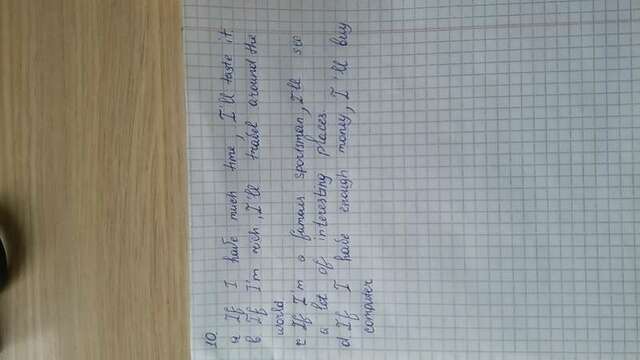 10.
a If I have much time, I'll taste it.
b If I'm rich, I'll trabel around the
world
c If I'm a famous sportsman, I'll see
a lot of interesting places.
d) If I habe enough money, I'll buy
computer